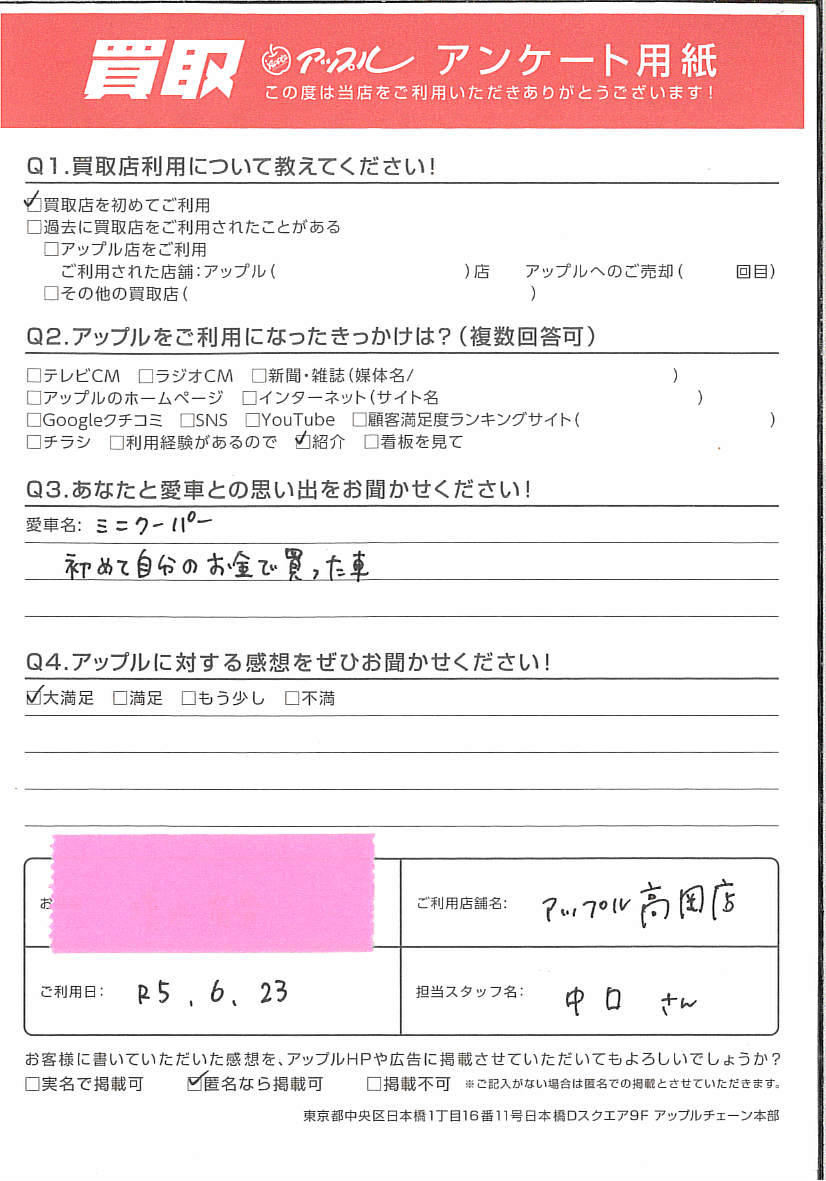 買取 アップル アンケート用紙
この度は当店をご利用いただきありがとうございます!
Q1.買取店利用について教えてください!
☑買取店を初めてご利用
□過去に買取店をご利用されたことがある
□アップル店をご利用
ご利用された店舗:アップル( )店 アップルへのご売却( 回目)
□その他の買取店( )
Q2.アップルをご利用になったきっかけは?(複数回答可)
□テレビCM □ラジオCM □新聞・雑誌(媒体名/ )
□アップルのホームページ □インターネット(サイト名 )
□Googleクチコミ □SNS □YouTube □顧客満足度ランキングサイト( )
□チラシ □利用経験があるので ☑紹介 □看板を見て
Q3.あなたと愛車との思い出をお聞かせください!
愛車名: ミニクーパー
初めて自分のお金で買った車
Q4.アップルに対する感想をぜひお聞かせください!
☑大満足 □満足 □もう少し □不満
お
ご利用店舗名: アップル高岡店
ご利用日: R5.6.23
担当スタッフ名: 中口 さん
お客様に書いていただいた感想を、アップルHPや広告に掲載させていただいてもよろしいでしょうか?
□実名で掲載可 ☑匿名なら掲載可 □掲載不可 ※ご記入がない場合は匿名での掲載とさせていただきます。
東京都中央区日本橋1丁目16番11号日本橋Dスクエア9F アップルチェーン本部